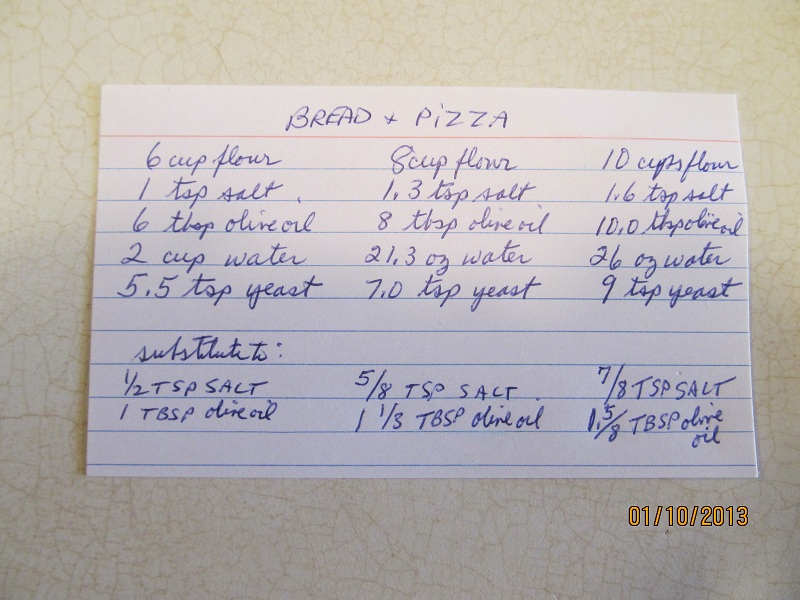 BREAD + PiZZA
6 cup flour 8 cup flour 10 cups flour
1 tsp salt. 1.3 tsp salt 1.6 tsp salt
6 tbsp olive oil 8 tbsp olive oil 10.0 tbsp olive oil
2 cup water 21.3 oz water 26 oz water
5.5 tsp yeast 7.0 tsp yeast 9 tsp yeast
substitute to:
1/2 TSP SALT 5/8 TSP SALT. 7/8 TSP SALT
1 TBSP olive oil 1 1/3 TBSP olive oil 1.5/8 TBSP olive
oil
01/10/2013